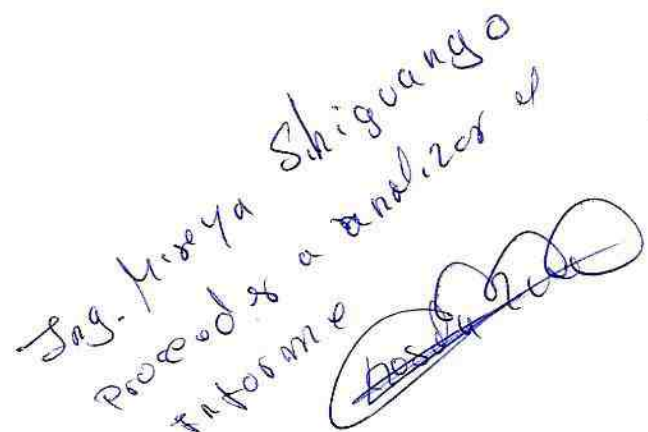 Ing. Mireya Shiguango
proceder a analizar el
Informe